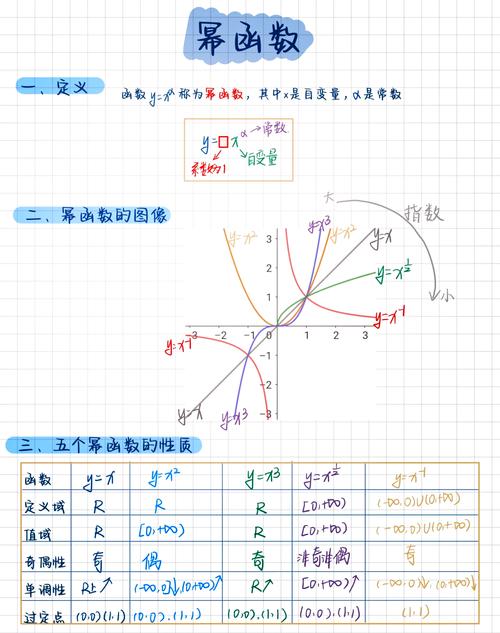 幂函数
一、定义 函数y=x^α称为幂函数，其中x是自变量，α是常数
y=□x^α→常数
系数为1 自变量
二、幂函数的图像
大 指数 小
y=x² y=x³ y=x² y=x
y=x^½
y=x⁻¹
y=x⁻¹
y=x y=x³
3
2
1
-3 -2 -1 0 1 2 3
-1
-2
-3
三、五个幂函数的性质
函数 y=x y=x² y=x³ y=x^½ y=x⁻¹
定义域 R R R [0,+∞) (-∞,0)∪(0,+∞)
值域 R [0,+∞) R [0,+∞) (-∞,0)∪(0,+∞)
奇偶性 奇 偶 奇 非奇非偶 奇
单调性 R上↗ (-∞,0)↓,(0,+∞)↗ R↗ [0,+∞)↗ (-∞,0)↓,(0,+∞)↓
过定点 (0,0)(1,1) (0,0),(1,1) (0,0),(1,1) (0,0),(1,1) (1,1)